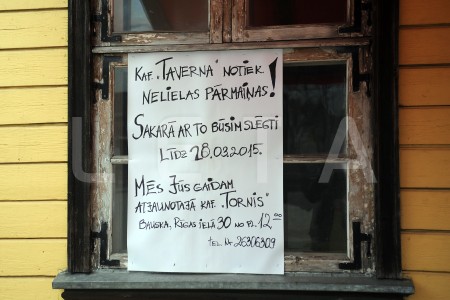 KAF. „TAVERNA" NOTIEK
NELIELAS PĀRMAIŅAS!
SAKARĀ AR TO BŪSIM SLĒGTI
LĪDZ 28.03.2015.
MĒS JŪS GAIDAM
ATJAUNOTAJĀ KAF. „TORNIS"
BAUSKA, RĪGAS IELĀ 30 NO PL. 12 00
TEL. NR. 26306309
LETA